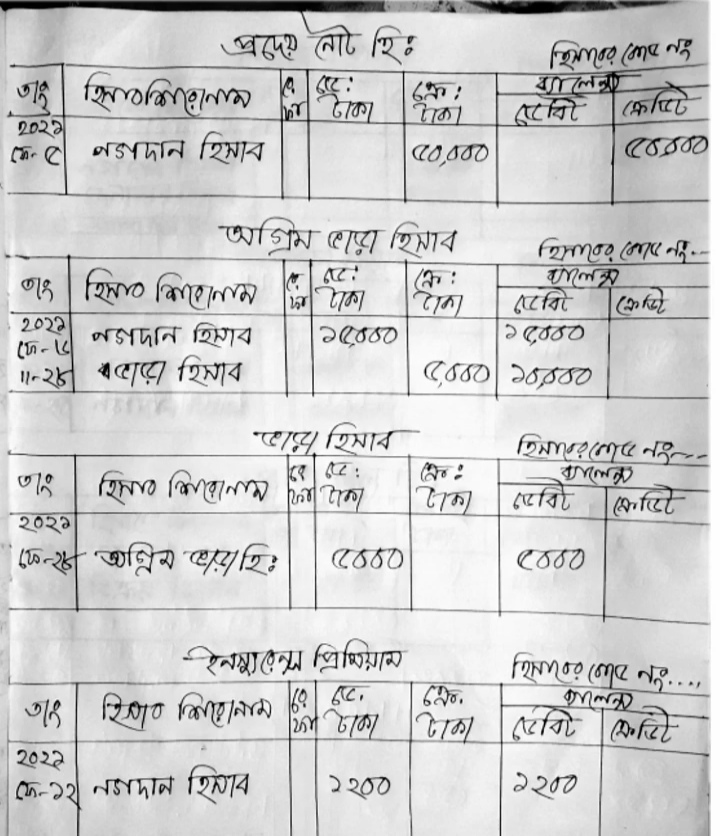 প্রদেয় নোট হিঃ
হিসাবের কোড নং
তাং হিসাব শিরোনাম রে ফা ডে: টাকা ক্রে: টাকা ব্যালেন্স
ডেবিট ক্রেডিট
২০২১
ফে-৫ নগদান হিসাব ৫০,০০০ ৫০,০০০
অগ্রিম ভাড়া হিসাব
হিসাবের কোড নং...
তাং হিসাব শিরোনাম রে ফা ডে: টাকা ক্রে: টাকা ব্যালেন্স
ডেবিট ক্রেডিট
২০২১ নগদান হিসাব ১৫,০০০ ১৫,০০০
ফে-
"-২৮ ভাড়া হিসাব ৫,০০০ ১০,০০০
ভাড়া হিসাব
হিসাবের কোড নং---
তাং হিসাব শিরোনাম রে ফা ডে: টাকা ক্রে: টাকা ব্যালেন্স
ডেবিট ক্রেডিট
২০২১
ফে-২৮ অগ্রিম ভাড়া হিঃ ৫০০০ ৫০০০
ইনস্যুরেন্স প্রিমিয়াম
হিসাবের কোড নং....
তাং হিসাব শিরোনাম রে ফা ডে: টাকা ক্রে. টাকা ব্যালেন্স
ডেবিট ক্রেডিট
২০২১
ফে-১২ নগদান হিসাব ১২০০ ১২০০